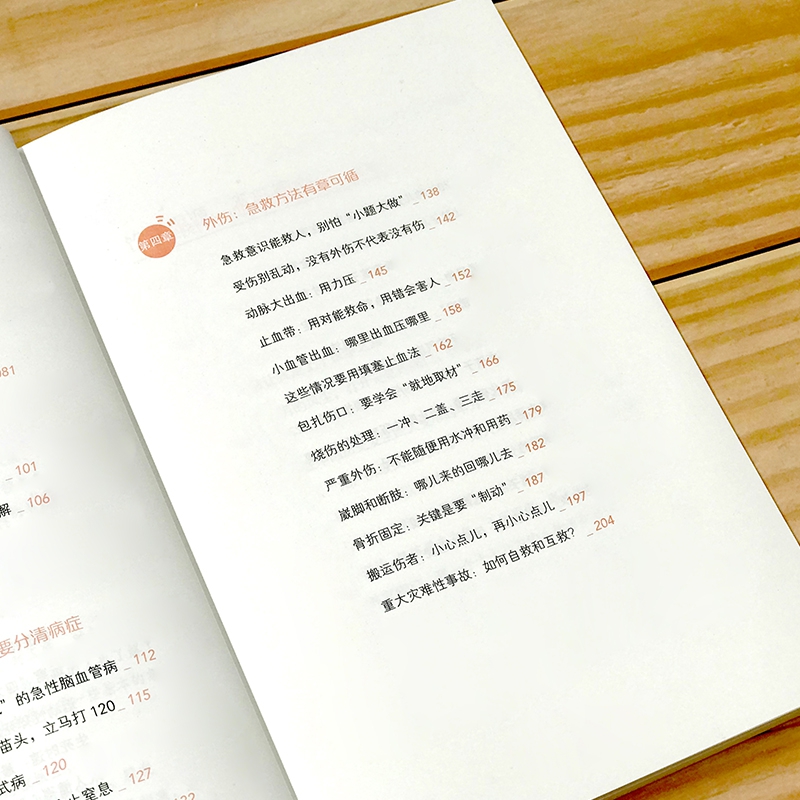 081
101
解 106
要分清病症
”的急性脑血管病 112
苗头，立马打 120 115
式病 120
止窒息 127
132
第四章
外伤：急救方法有章可循
急救意识能救人，别怕“小题大做” _138
受伤别乱动，没有外伤不代表没有伤 _142
动脉大出血：用力压 _145
止血带：用对能救命，用错会害人 _152
小血管出血：哪里出血压哪里 _158
这些情况要用填塞止血法 _162
包扎伤口：要学会“就地取材” _166
烧伤的处理：一冲、二盖、三走 _175
严重外伤：不能随便用水冲和用药 _179
崴脚和断肢：哪儿来的回哪儿去 _182
骨折固定：关键是要“制动” _187
搬运伤者：小心点儿，再小心点儿 _197
重大灾难性事故：如何自救和互救？ _204